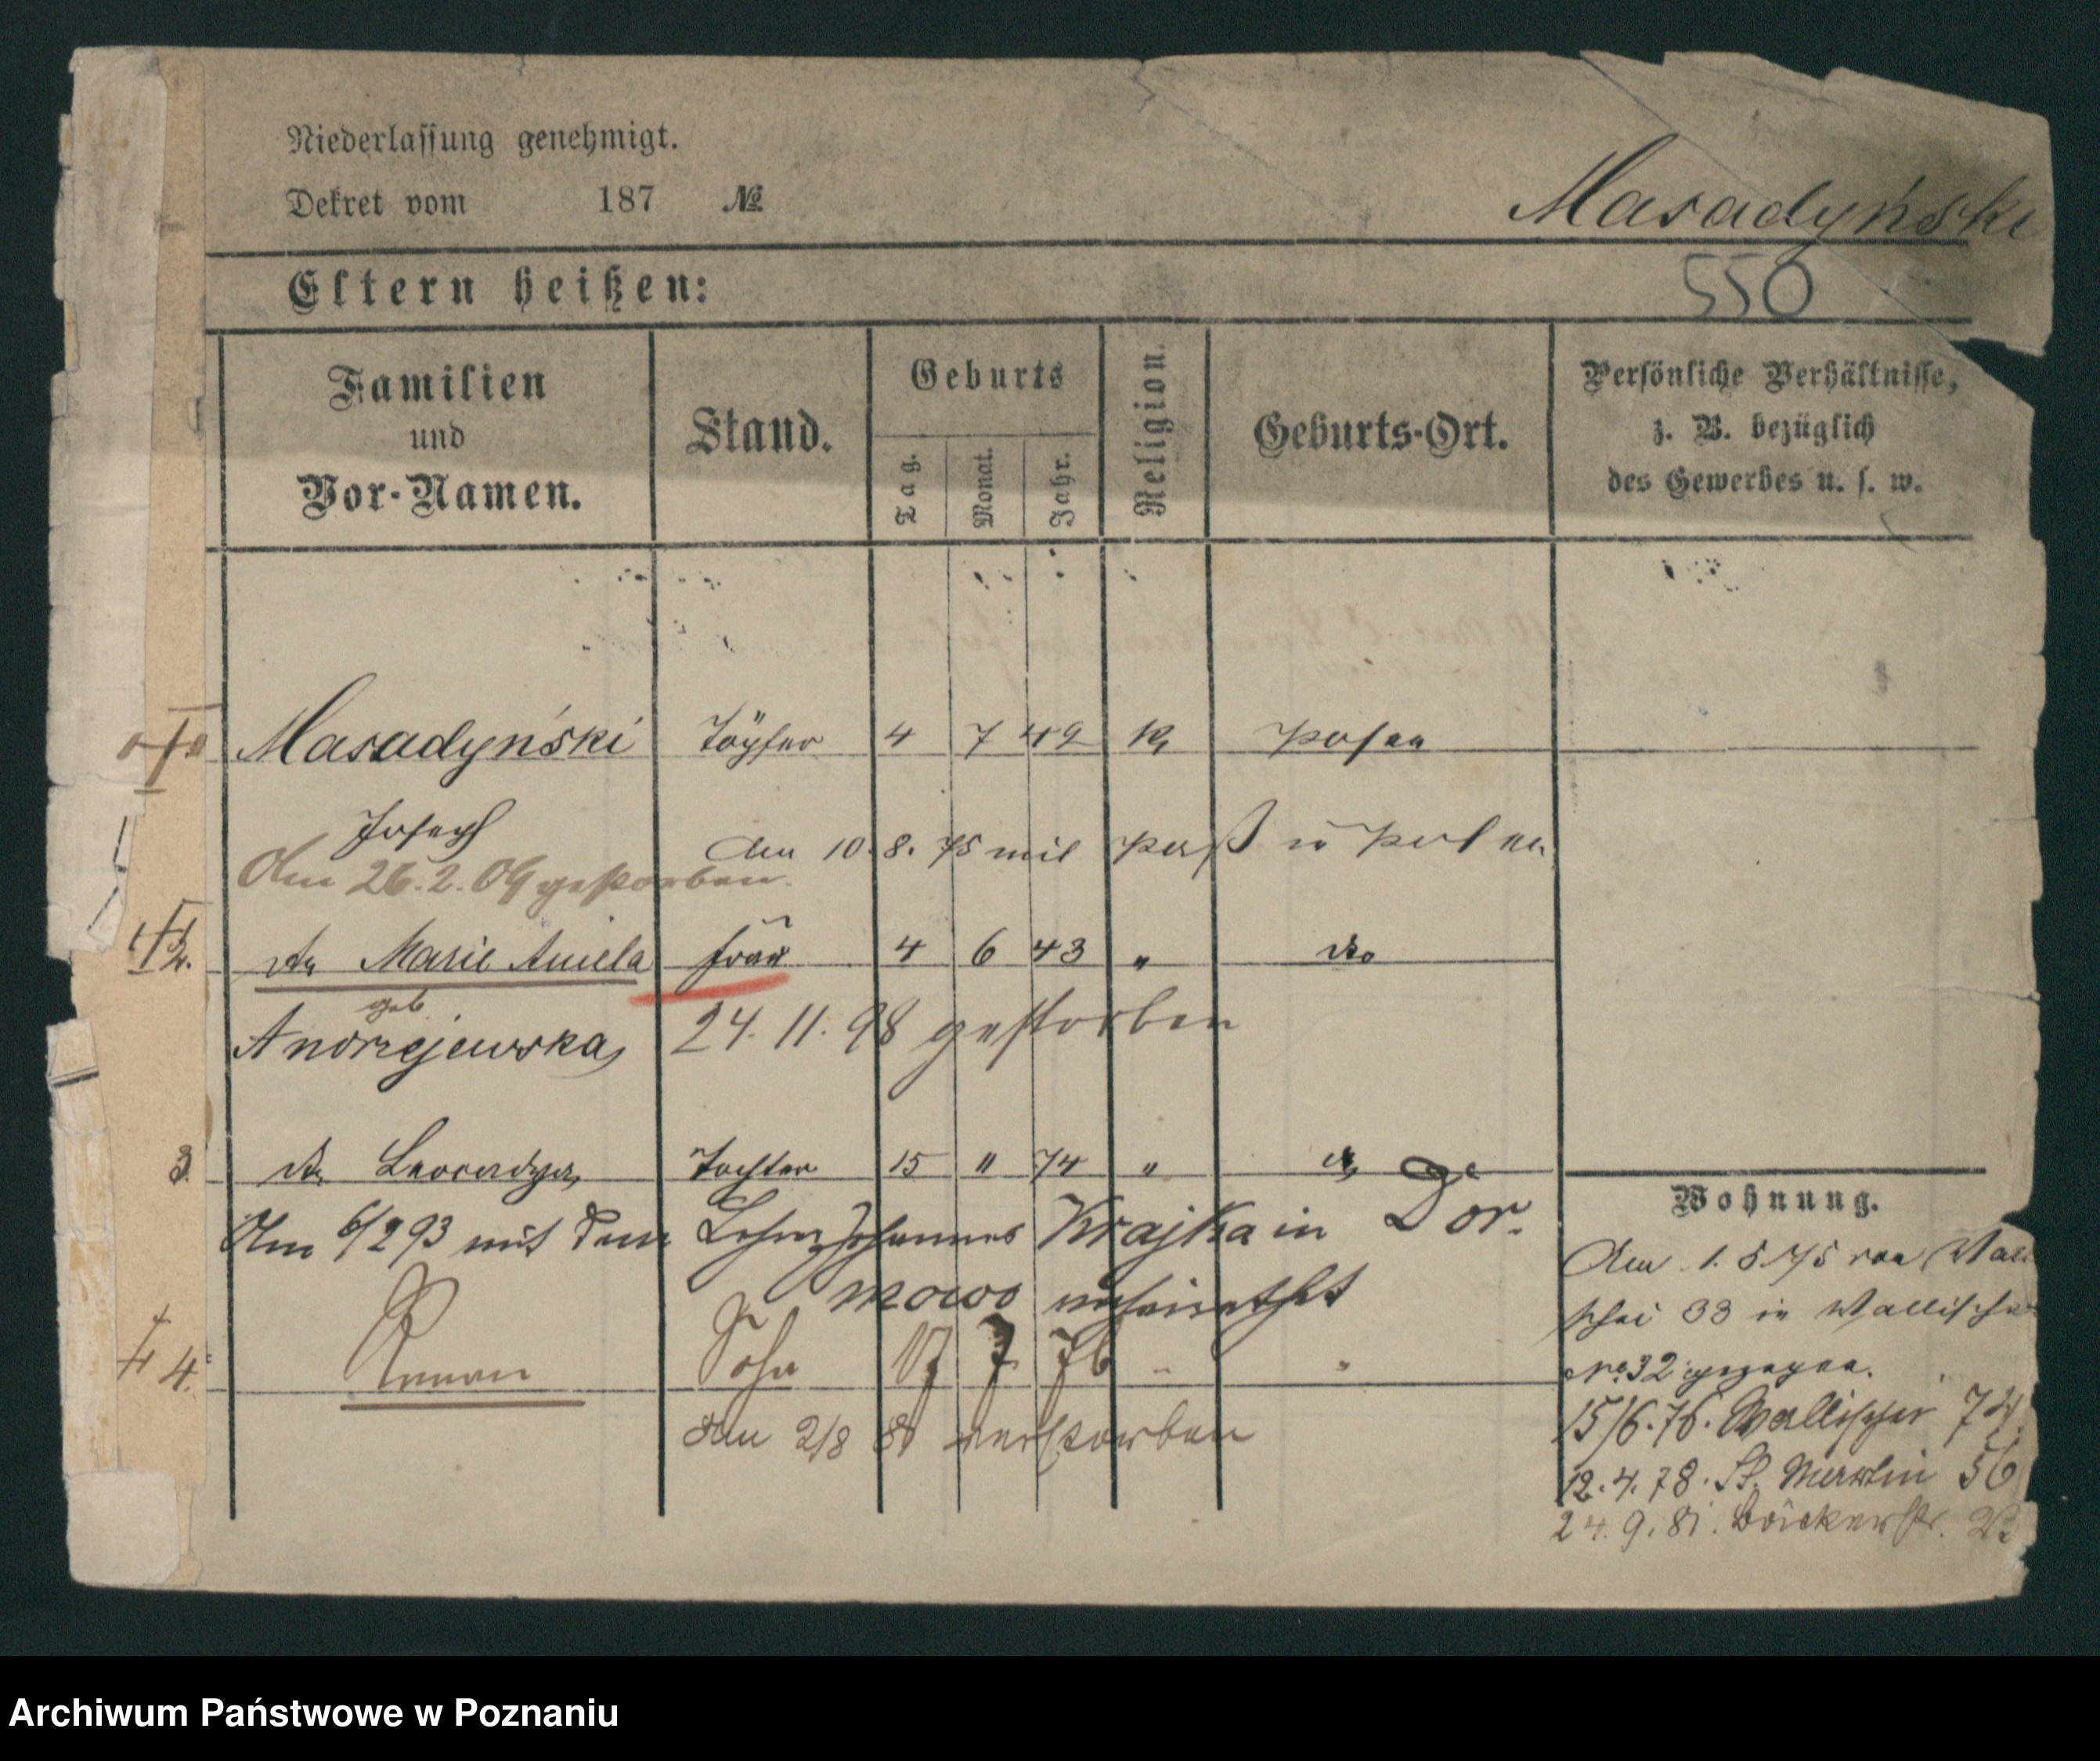 Niederlassung genehmigt.
Dekret vom 187 №
Masadyński
Eltern heißen:
550
Familien
und
Vor-Namen.
Stand.
Geburts
Tag.
Monat.
Jahr.
Religion.
Geburts-Ort.
Persönliche Verhältnisse,
z. B. bezüglich
des Gewerbes u. s. w.
Masadyński Töpfer 4 7 49 K Posen
Joseph
Am 10. 8. 75 mit Paß in Polen
Am 26. 2. 09 gestorben.
2. Marie Aniela Frau 4 6 43 " do
geb.
Andrzejewska 24. 11. 98 gestorben
3. Leocadya Tochter 15 " 74 "
Am 6/2 93 mit dem Johannes Krajka in Gr Dor.
mowo verheirathet
4. Roman Sohn 17 7 76 " "
Am 2/8 80 verstorben
Wohnung.
Am 1. 5. 75 von Walli
schei 33 in Wallischei
No. 32 gezogen.
15/6. 76. Wallischei 74
12. 4. 78. St. Martin 56
24. 9. 81. Bäckerstr.
Archiwum Państwowe w Poznaniu